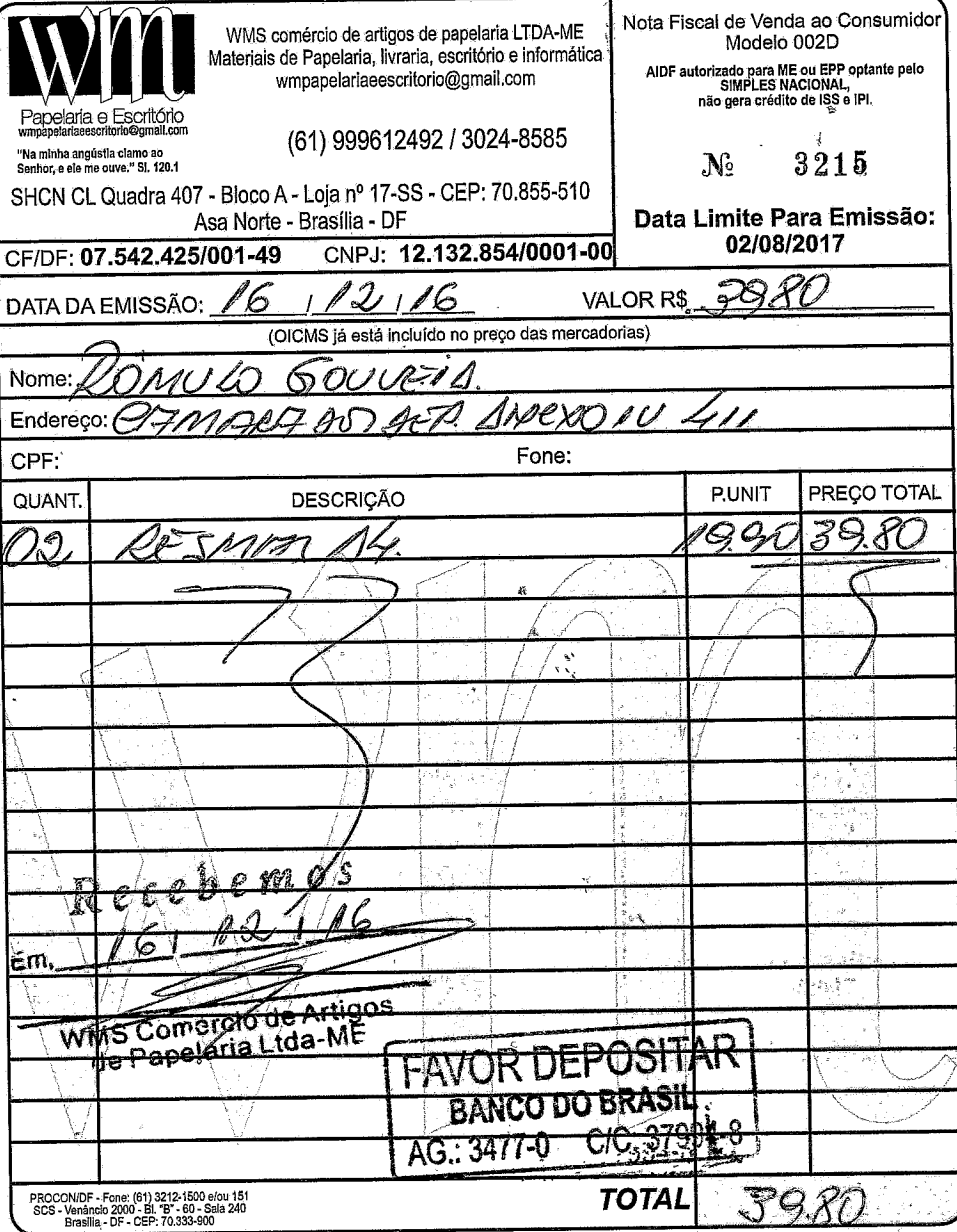 wm
Papelaria e Escritório
wmpapelariaeescritorio@gmail.com
"Na minha angústia clamo ao
Senhor, e ele me ouve." Sl. 120.1
WMS comércio de artigos de papelaria LTDA-ME
Materiais de Papelaria, livraria, escritório e informática
wmpapelariaeescritorio@gmail.com
(61) 999612492 / 3024-8585
SHCN CL Quadra 407 - Bloco A - Loja nº 17-SS - CEP: 70.855-510
Asa Norte - Brasília - DF
CF/DF: 07.542.425/001-49 CNPJ: 12.132.854/0001-00
Nota Fiscal de Venda ao Consumidor
Modelo 002D
AIDF autorizado para ME ou EPP optante pelo
SIMPLES NACIONAL,
não gera crédito de ISS e IPI.
Nº 3215
Data Limite Para Emissão:
02/08/2017
DATA DA EMISSÃO: 16 / 12 / 16 VALOR R$ 39.80
(OICMS já está incluído no preço das mercadorias)
Nome: ROMULO GOUVEIA.
Endereço: CAMARA DOS DEP. ANEXO IV 411
CPF: Fone:
QUANT. DESCRIÇÃO P.UNIT PREÇO TOTAL
02 RESMA A4. 19.90 39.80
Recebemos
Em, 16 / 12 / 16
WMS Comercio de Artigos
de Papelaria Ltda-ME
FAVOR DEPOSITAR
BANCO DO BRASIL
AG.: 3477-0 C/C.
PROCON/DF - Fone: (61) 3212-1500 e/ou 151
SCS - Venâncio 2000 - Bl. "B" - 60 - Sala 240
Brasília - DF - CEP: 70.333-900
TOTAL 39.80